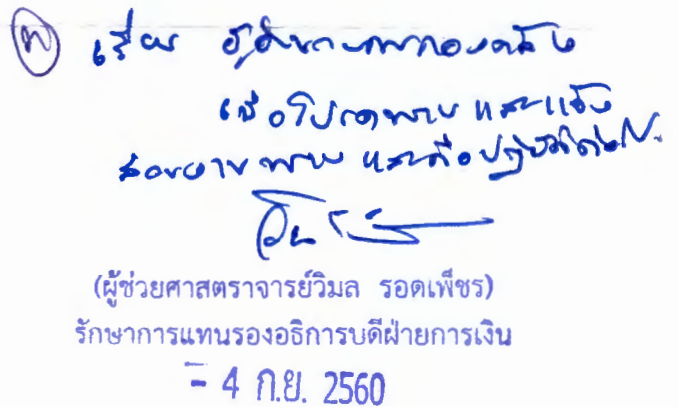 เรียน ผู้อำนวยการกองคลัง
เพื่อโปรดทราบ และแจ้ง
ทราบ และถือปฏิบัติต่อไป
(ผู้ช่วยศาสตราจารย์วิมล รอดเพ็ชร)
รักษาการแทนรองอธิการบดีฝ่ายการเงิน
- 4 ก.ย. 2560